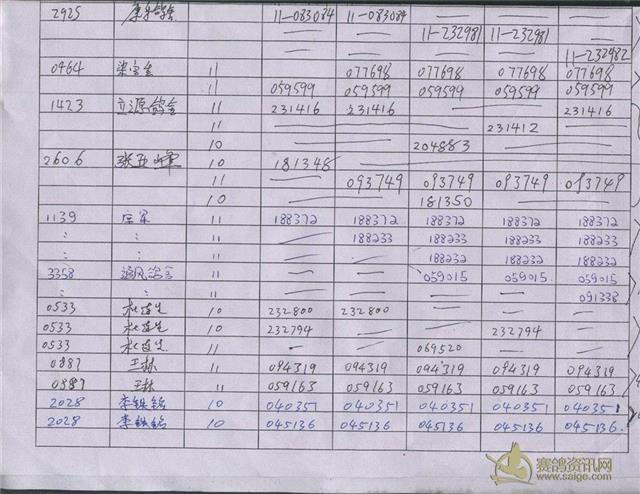 2925 11-083084 11-083084 — — —
— — 11-232981 11-232981 —
— — — — 11-232982
0464 11 — 077698 077698 077698 077698
11 059599 059599 059599 059599 059599
1423 立源鸽舍 11 231416 231416 — — 231416
11 — — — 231412 —
10 — — 204883 — —
2606 10 181348 — — — —
11 — 093749 093749 093749 093749
10 — — 181350 — —
1139 11 188372 188372 188372 188372 188372
: : 11 — 188233 188233 188233 188233
: : 11 — — 188232 188232 188232
3358 11 — — 059015 059015 059015
: : 11 — — — — 091338
0533 10 232800 232800 — — —
0533 10 232794 — — 232794 —
0533 11 — — 069520 — —
0887 王林 11 094319 094319 094319 094319 094319
0887 王林 11 059163 059163 059163 059163 059163
2028 李铁铭 10 040351 040351 040351 040351 040351
2028 李铁铭 10 045136 045136 045136 045136 045136
赛鸽资讯网
www.saige.com